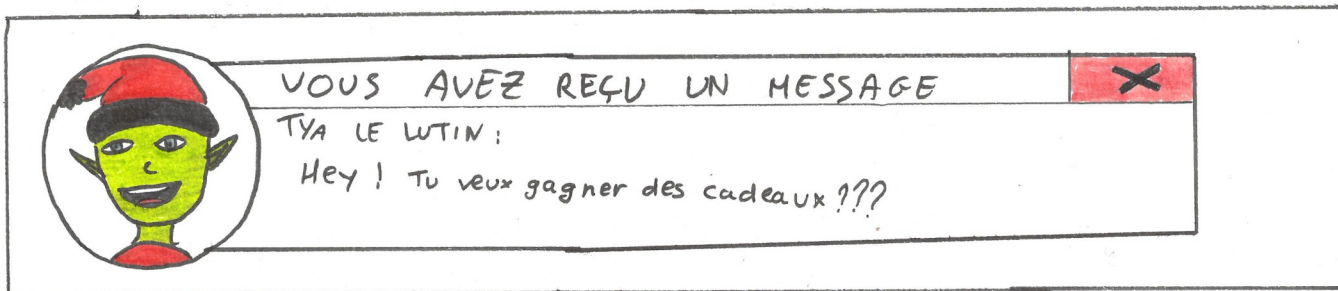 VOUS AVEZ REÇU UN MESSAGE
TYA LE LUTIN :
Hey ! Tu veux gagner des cadeaux ???